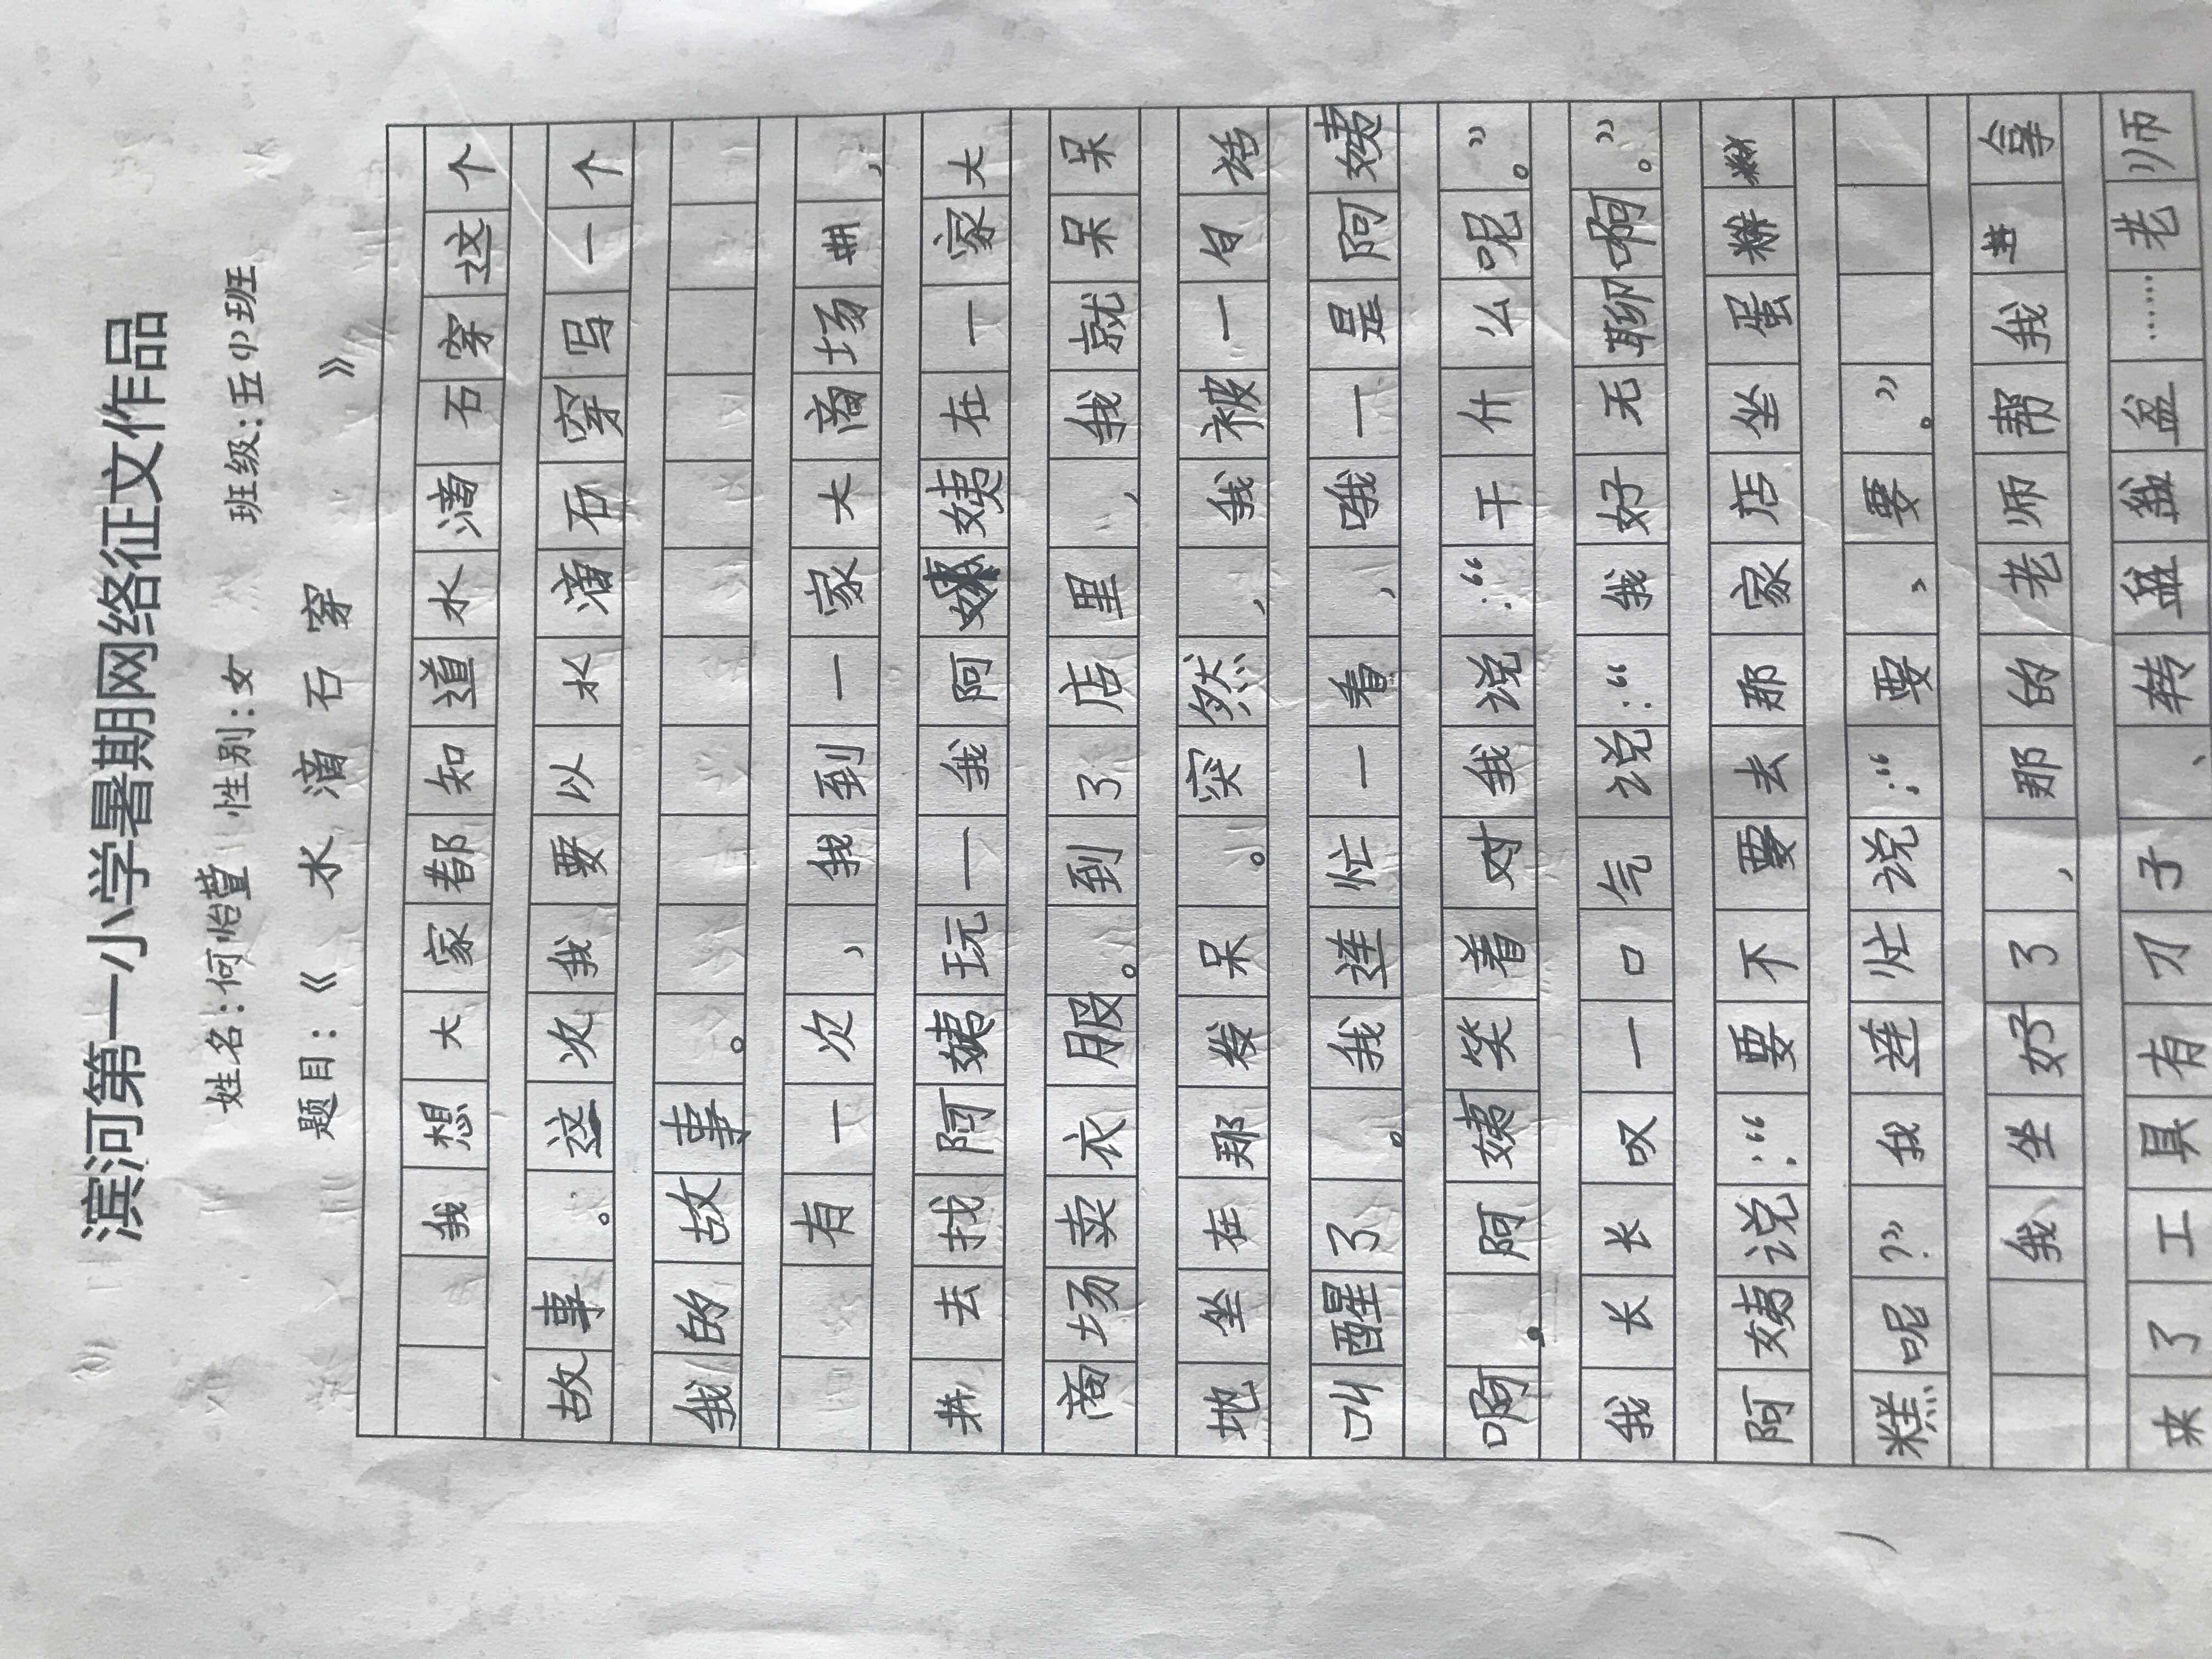 滨河第一小学暑期网络征文作品
姓名:何怡萱 性别:女 班级:五(1)班
题目:《 水 滴 石 穿 》
我想大家都知道水滴石穿这个
故事。这次我要以水滴石穿写一个
我的故事。
有一次,我到一家大商场,
去找阿姨玩一我阿姨在一家大
商场卖衣服。到了店里,我就呆呆
地坐在那发呆。突然,我被一句话
叫醒了。我连忙一看,哦一是阿姨
啊。阿姨笑着对我说:“干什么呢。”
我长长叹一口气说:“我好无聊啊。”
阿姨说:“要不要去那家店坐蛋
糕呢?”我连忙说:“要,要。”
我坐好了,那的老师帮我拿
来了工具有刀子、转盆……老师